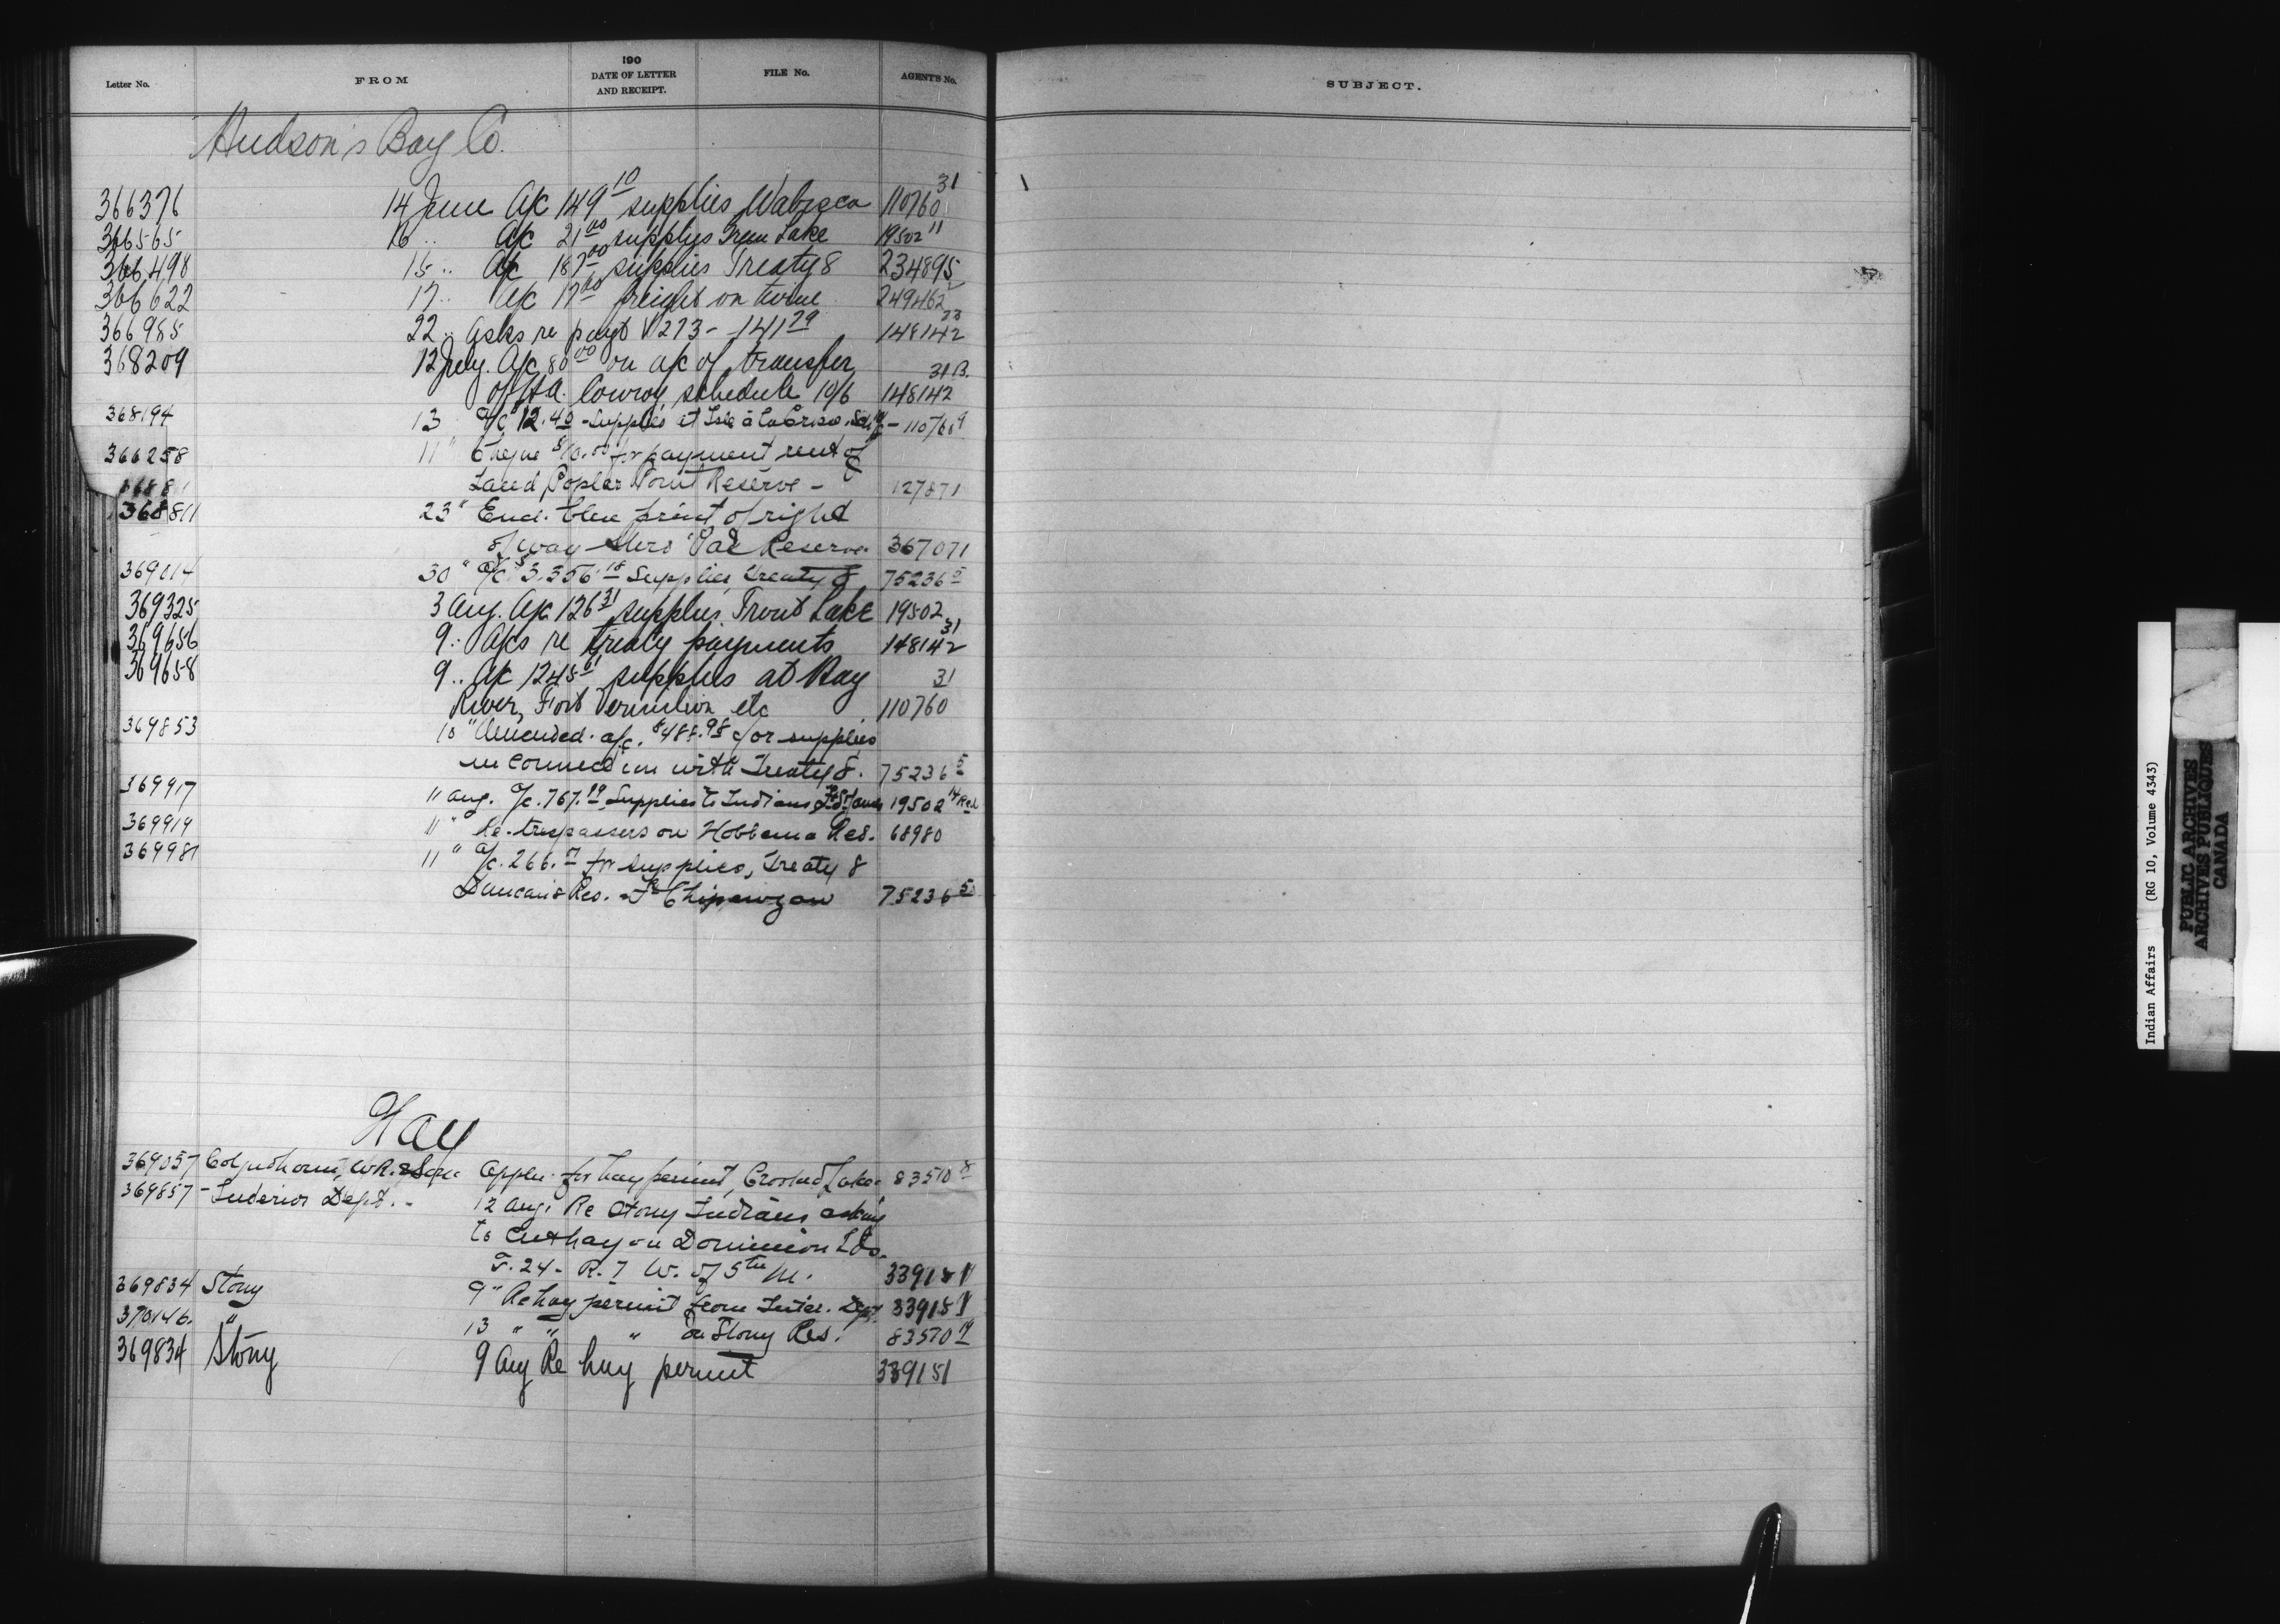 Letter No. FROM 190 DATE OF LETTER AND RECEIPT. FILE No. AGENT'S No. SUBJECT.
Hudson's Bay Co.
366376 14 June A/c 149 10 supplies Wabisca 110760 31
366565 16 .. A/c 21 00 supplies Lake 19502 11
366498 15 .. A/c 187 00 supplies Treaty 8 234895
366622 17 .. A/c 17 00 freight on twine 249462 2
366985 22 .. Asks re payt V 273 - 141 79 148142 23
368209 12 July. A/c 80 00 on a/c of transfer 31 B.
of H.A. Conroy, schedule 10/6 148142
368194 13 A/c 12.40 - Supplies at Isle à la Crosse 110760 9
366258 11 " Cheque for payment rent of
Land Poplar Point Reserve - 127871
368811 23 " Encl. blue print of right
of way thro' Pas Reserve. 367071
369014 30 " a/c $3,356.18 Supplies, Treaty 8 75236 5
369325 3 Aug. A/c 126 31 supplies Trout Lake 19502
369656 9 .. A/cs re treaty payments 148142 31
369658 9 .. A/c 1245 61 supplies at Hay 31
River, Fort Vermilion etc 110760
369853 10 " Amended a/c. $488.98 for supplies
in connection with Treaty 8. 75236 5
369917 11 Aug. a/c. 767.19 Supplies to Indians 19502 14
369919 11 " Re-trespassers on Hobbema Res. 68980
369981 11 " a/c. 266. for supplies, Treaty 8
Duncan's Res. Ft Chipewyan 75236 5
Hay
369057 Colquhoun, W.R. Appln. for hay permit, Crooked Lake 83570 8
369857 - Interior Dept. - 12 Aug. Re Stony Indians asking
to cut hay on Dominion Lds.
T. 24 - R. 7 W. of 5th M. 339151
369834 Stony 9 " Re hay permit from Inter. Dept. 339151
370146. " 13 " " " on Stony Res. 83570 19
369834 Stony 9 Aug Re hay permit 339151
Indian Affairs (RG 10, Volume 4343)
PUBLIC ARCHIVES
ARCHIVES PUBLIQUES
CANADA